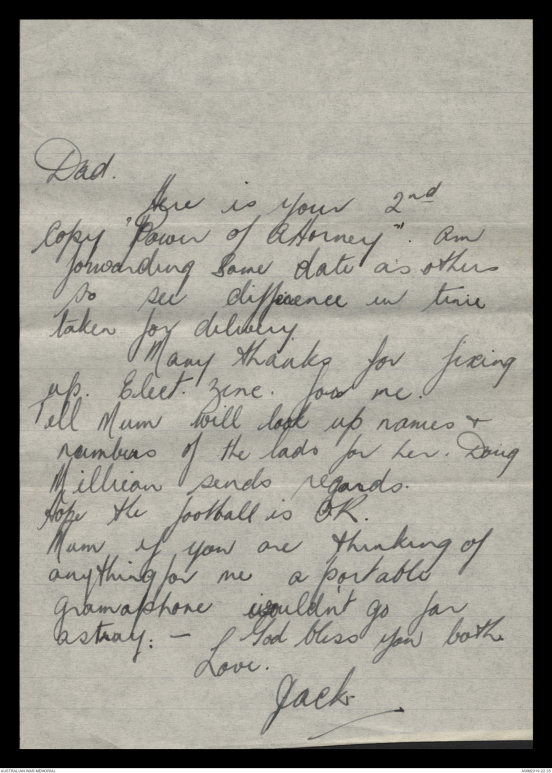 Dad.
Here is your 2nd
Copy "Power of Attorney". Am
forwarding same date as others
to see difference in time
taken for delivery
Many thanks for fixing
up. Elect. Zinc. for me.
Tell Mum will look up names &
numbers of the lads for her. Doug
Millican sends regards.
Hope the football is OK.
Mum if you are thinking of
anything for me a portable
gramaphone wouldn't go far
astray: - God bless you both.
Love.
Jack
AUSTRALIAN WAR MEMORIAL